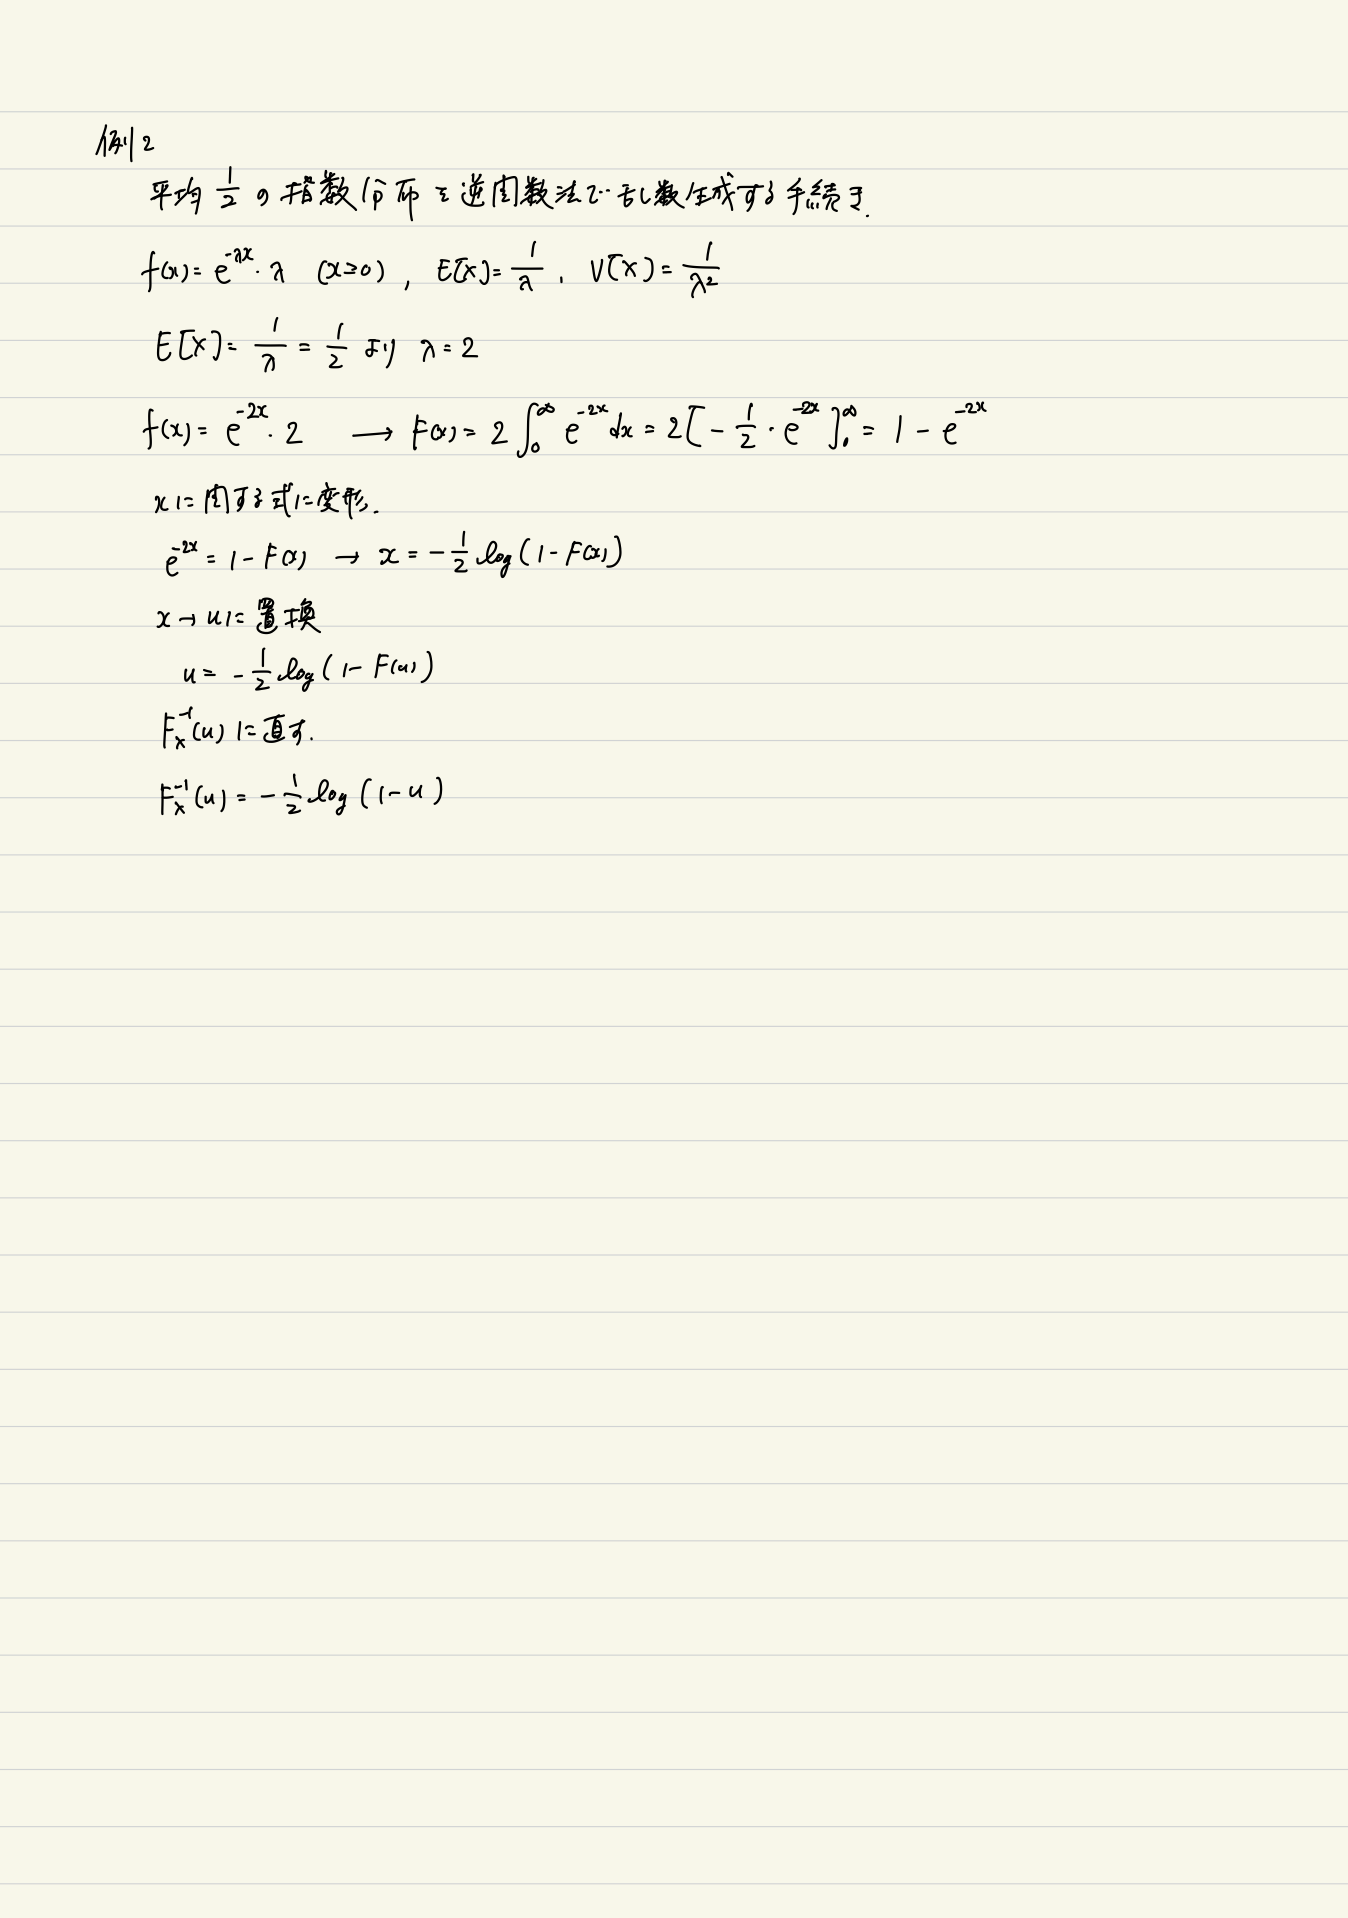 例2
平均 1/2 の指数分布を逆関数法で乱数生成する手続き.
f(x) = e^{-λx}・λ (x≥0) , E[X] = 1/λ , V[X] = 1/λ²
E[X] = 1/λ = 1/2 より λ = 2
f(x) = e^{-2x}・2 → F(x) = 2∫_0^∞ e^{-2x}dx = 2[-1/2・e^{-2x}]_0^∞ = 1 - e^{-2x}
xに関する式に変形.
e^{-2x} = 1 - F(x) → x = -1/2 log(1 - F(x))
x → uに置換
u = -1/2 log(1 - F(u))
F_X^{-1}(u) に直す.
F_X^{-1}(u) = -1/2 log(1-u)